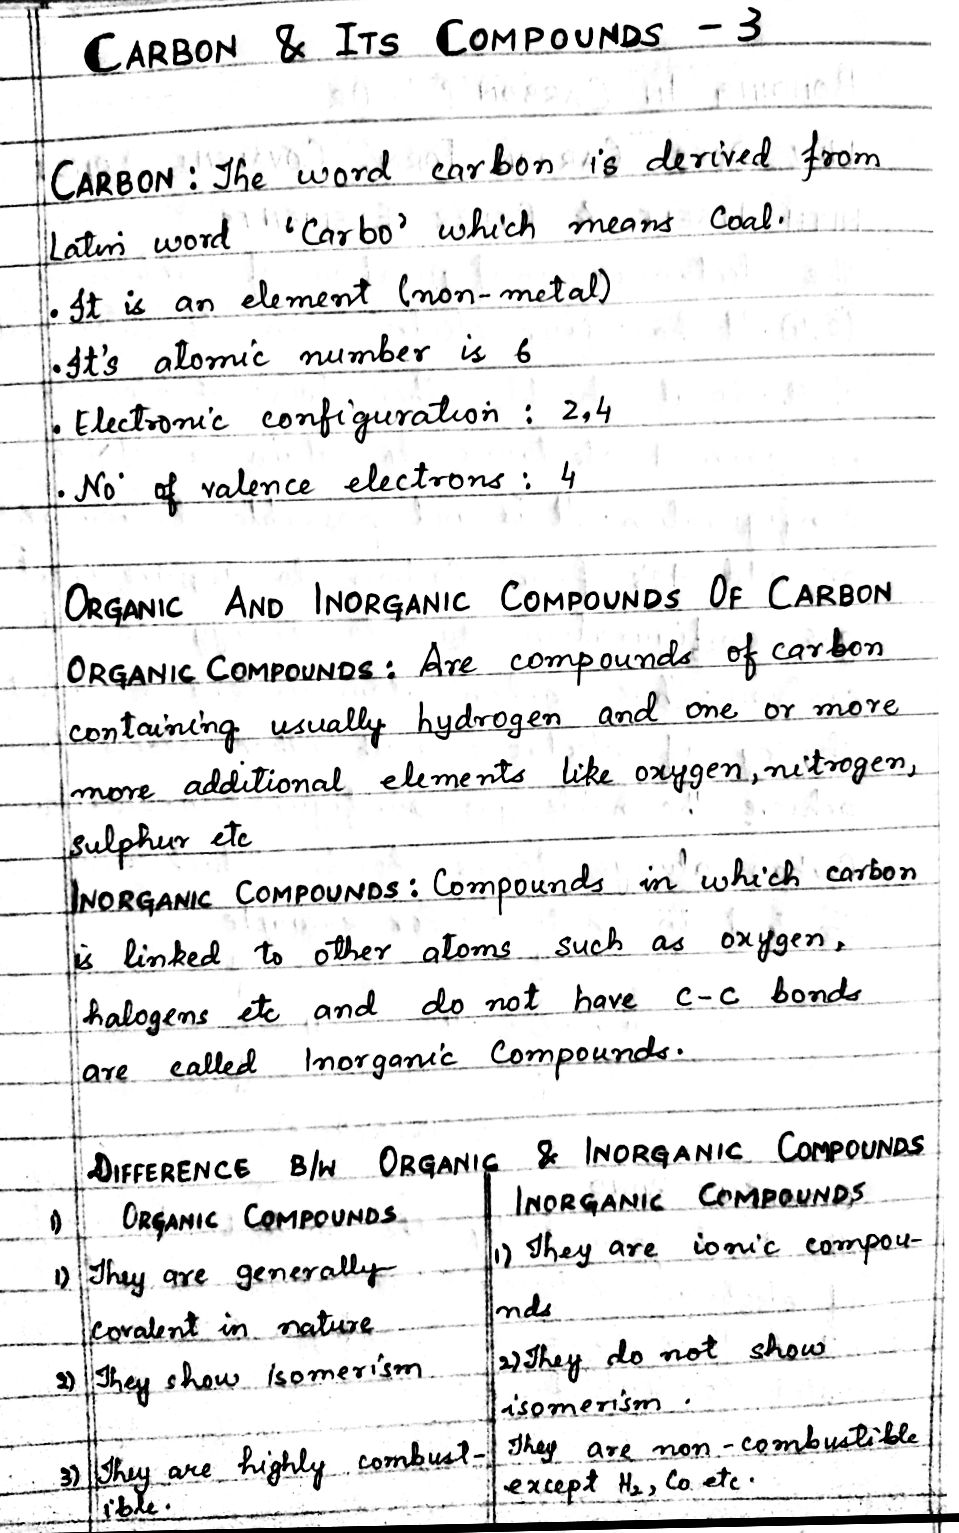 CARBON & ITS COMPOUNDS - 3
CARBON : The word carbon is derived from
Latin word 'Carbo' which means Coal.
• It is an element (non-metal)
• It's atomic number is 6
• Electronic configuration : 2,4
• No. of valence electrons : 4
ORGANIC AND INORGANIC COMPOUNDS OF CARBON
ORGANIC COMPOUNDS : Are compounds of carbon
containing usually hydrogen and one or more
more additional elements like oxygen, nitrogen,
sulphur etc
INORGANIC COMPOUNDS : Compounds in which carbon
is linked to other atoms such as oxygen,
halogens etc and do not have C-C bonds
are called Inorganic Compounds.
DIFFERENCE B/W ORGANIC & INORGANIC COMPOUNDS
1) ORGANIC COMPOUNDS
1) They are generally
covalent in nature
2) They show Isomerism
3) They are highly combust-
ible.
INORGANIC COMPOUNDS
1) They are ionic compou-
nds
2) They do not show
isomerism.
They are non-combustible
except H₂, Co etc.